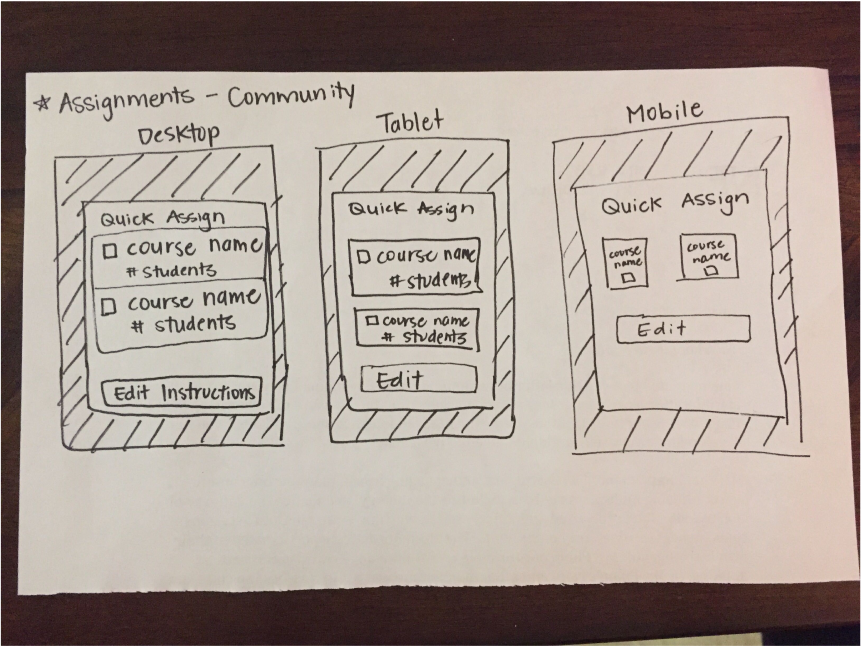 * Assignments - Community
Desktop
Quick Assign
course name
# students
course name
# students
Edit Instructions
Tablet
Quick Assign
course name
# students
course name
# students
Edit
Mobile
Quick Assign
course
name
course
name
Edit